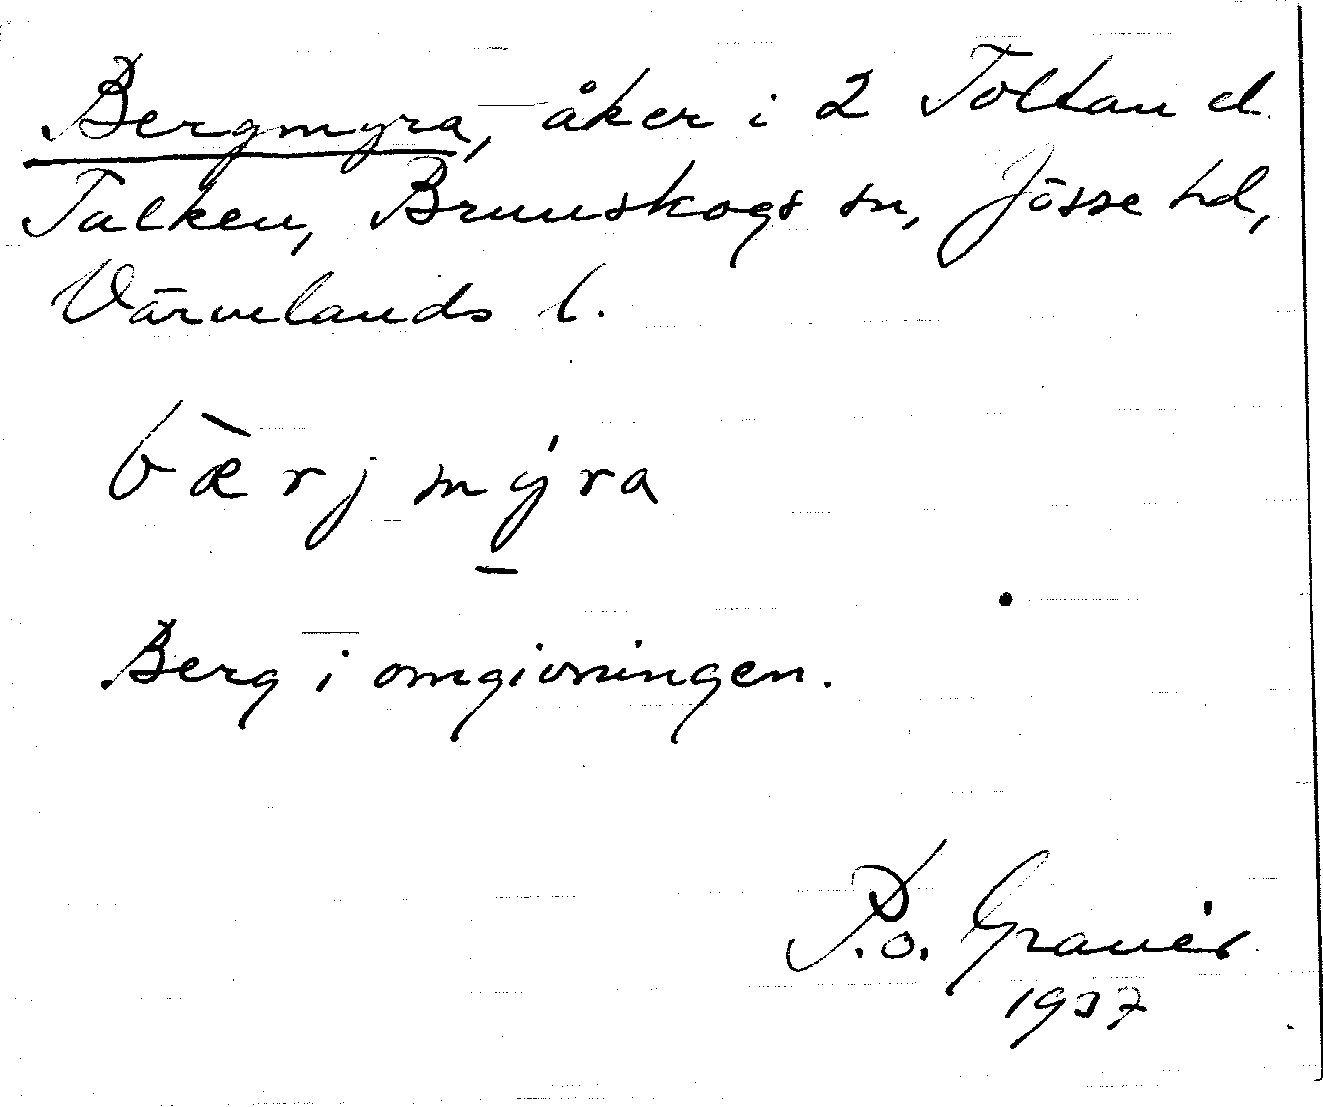 Bergmyra, åker i 2 Toltan el.
Talken, Brunskogs sn, Jösse hd,
Värmlands l.
bæ̀rjmýra
Berg i omgivningen.
P.O. Granér
1937